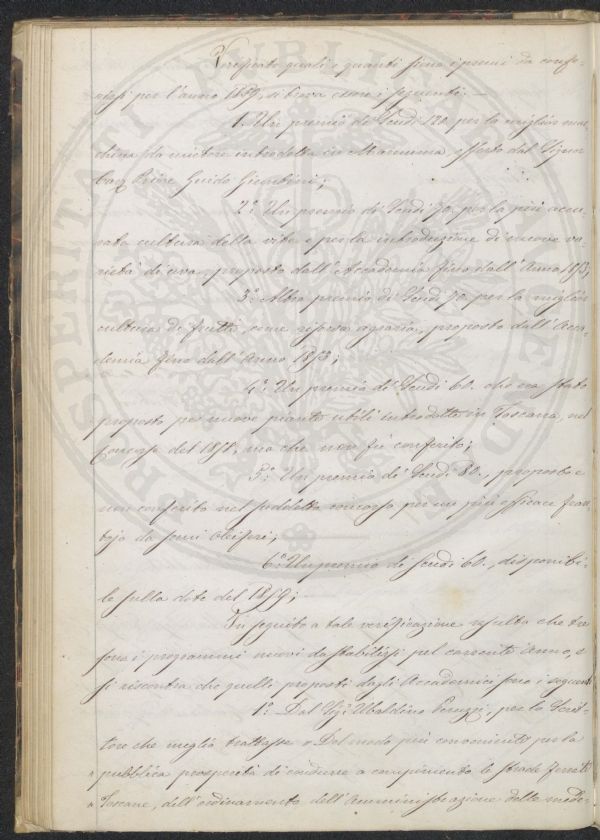 Verificato quali e quanti siano i premi da confe-
rirsi per l'anno 1859, si trova essere i seguenti.
1.° Un premio di Scudi 120. per la miglior mac-
china da mietere introdotta in Maremma, offerto dal Signor
Cav. Priore Guido Giuntini;
2.° Un premio di Scudi 70. per la più accu-
rata cultura della vite e per la introduzione di nuove va-
rietà di uva, proposto dall'Accademia fino dall'Anno 1853;
3.° Altro premio di Scudi 70. per la miglior
cultura de frutti, come risorsa agraria, proposto dall'Acca-
demia fino dall'Anno 1853;
4.° Un premio di Scudi 60. che era stato
proposto per nuove piante utili introdotte in Toscana, nel
Concorso del 1858, ma che non fu conferito;
5.° Un premio di Scudi 80., proposto e
non conferito nel suddetto concorso per un più efficace fran-
tojo da semi oleiferi;
6.° Un premio di Scudi 60., disponibi-
le sulla dote del 1859;
In seguito a tale verificazione resulta che tre
sono i programmi nuovi da stabilirsi pel corrente Anno, e
si riscontra che quelli proposti dagli Accademici sono i seguenti
1.° Dal Sig.r Ubaldino Peruzzi, per lo Scrit-
tore che meglio trattasse " Del modo più conveniente per la
" pubblica prosperità di condurre a compimento le strade ferrate
" Toscane, dell'ordinamento dell'Amministrazione delle mede-